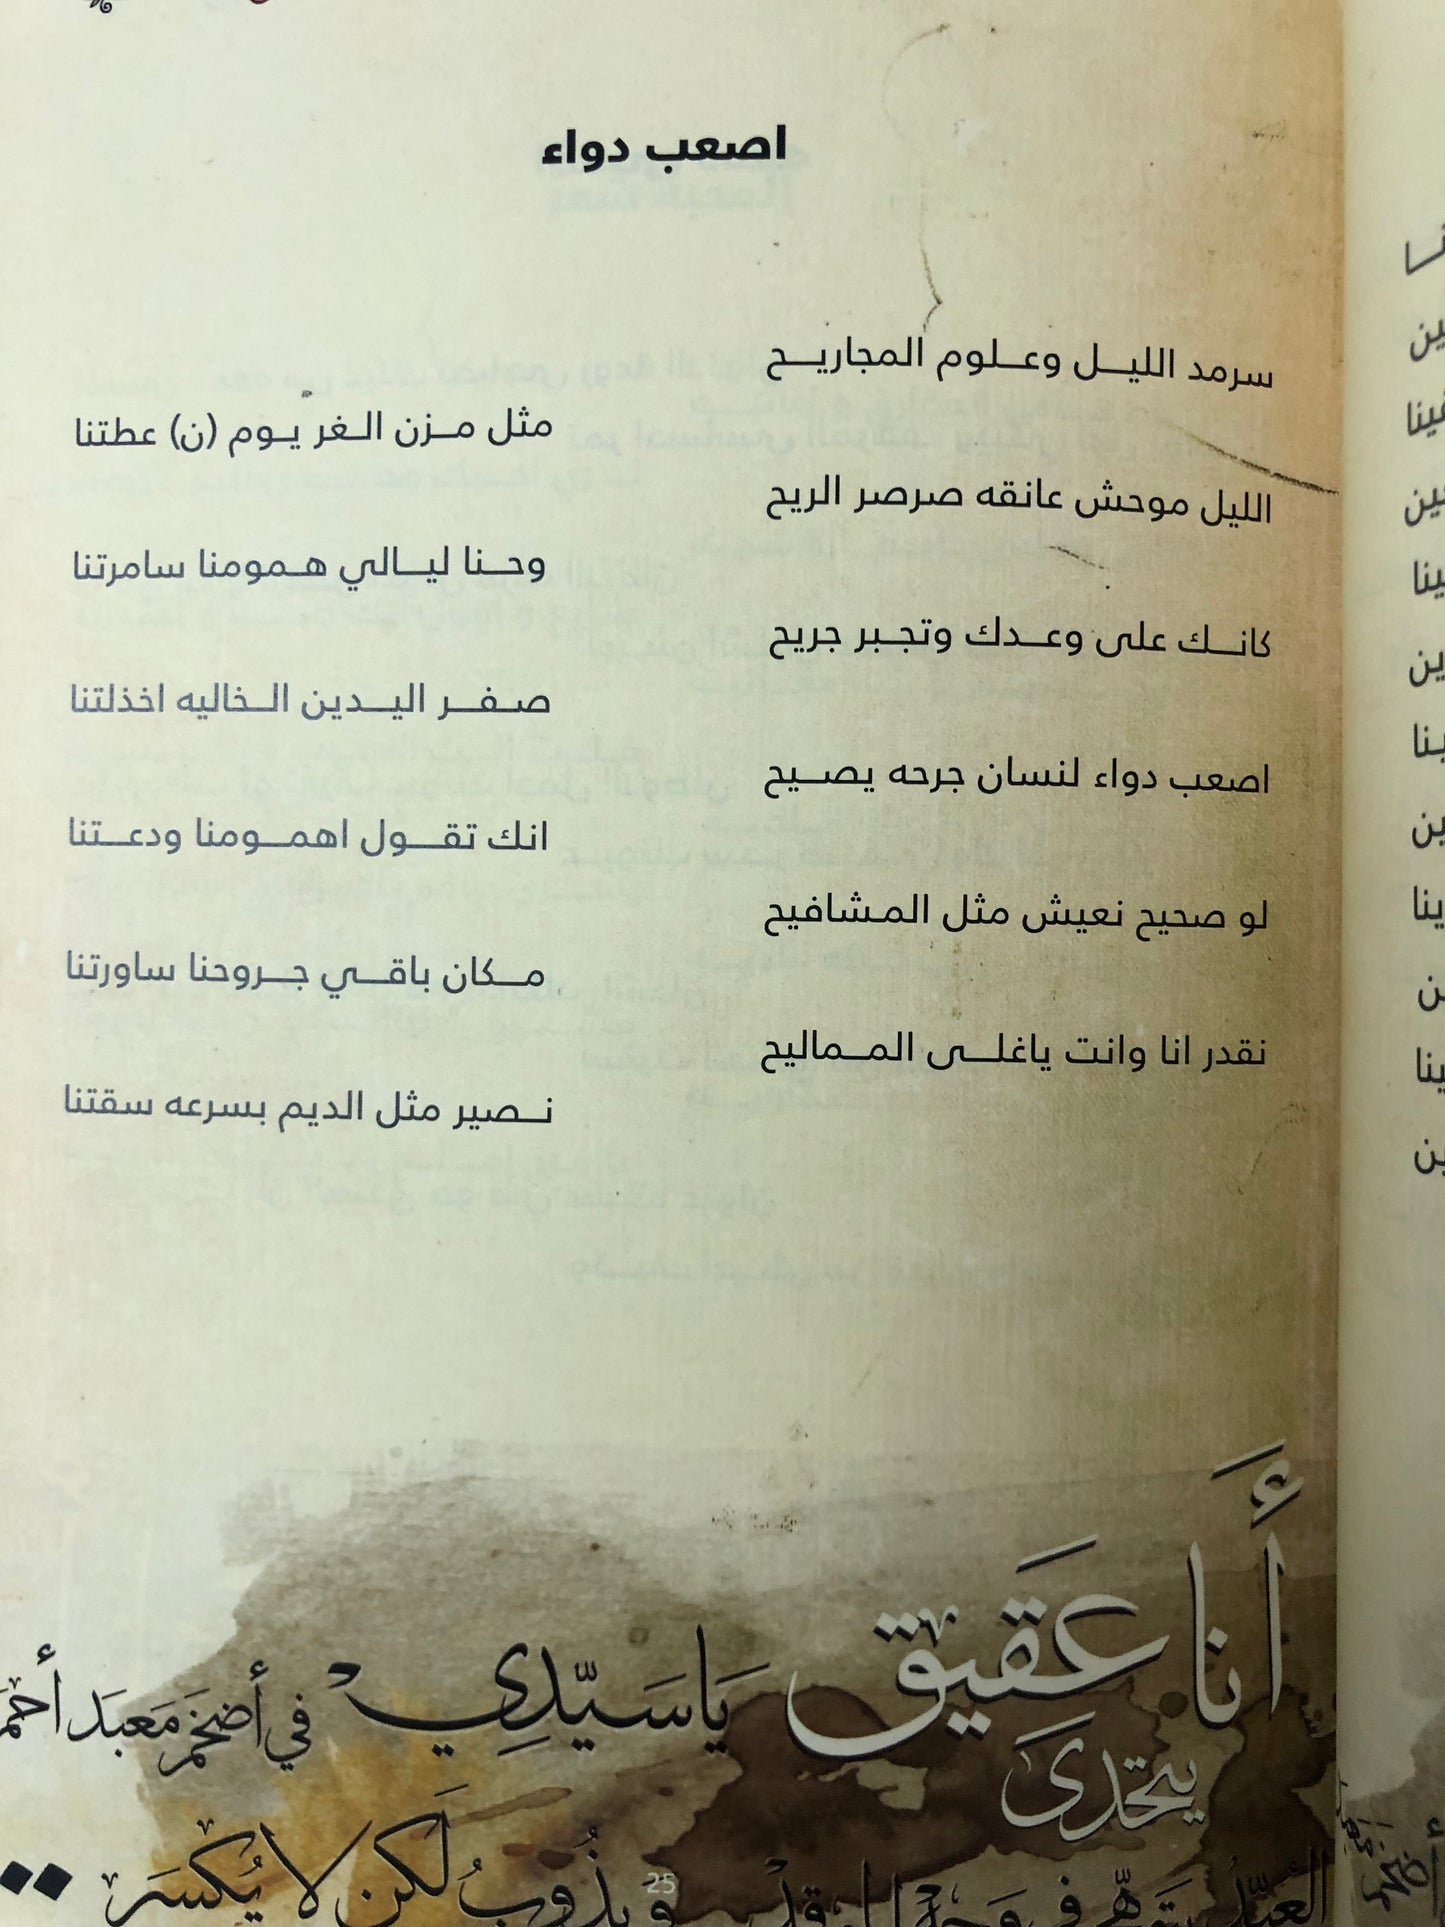 اصعب دواء
سرمد الليل وعلوم المجاريح
مثل مزن الغر يوم (ن) عطتنا
الليل موحش عانقه صرصر الريح
وحنا ليالي همومنا سامرتنا
كانك على وعدك وتجبر جريح
صفر اليدين الخاليه اخذلتنا
اصعب دواء لنسان جرحه يصيح
انك تقول اهمومنا ودعتنا
لو صحيح نعيش مثل المشافيح
مكان باقي جروحنا ساورتنا
نقدر انا وانت ياغلى المماليح
نصير مثل الديم بسرعه سقتنا
أَنا عَقيق يَاسَيّدِي في أضخَم مَعبَد
يتحدى
ويذُوبُ لَكن لا يُكسَر
25